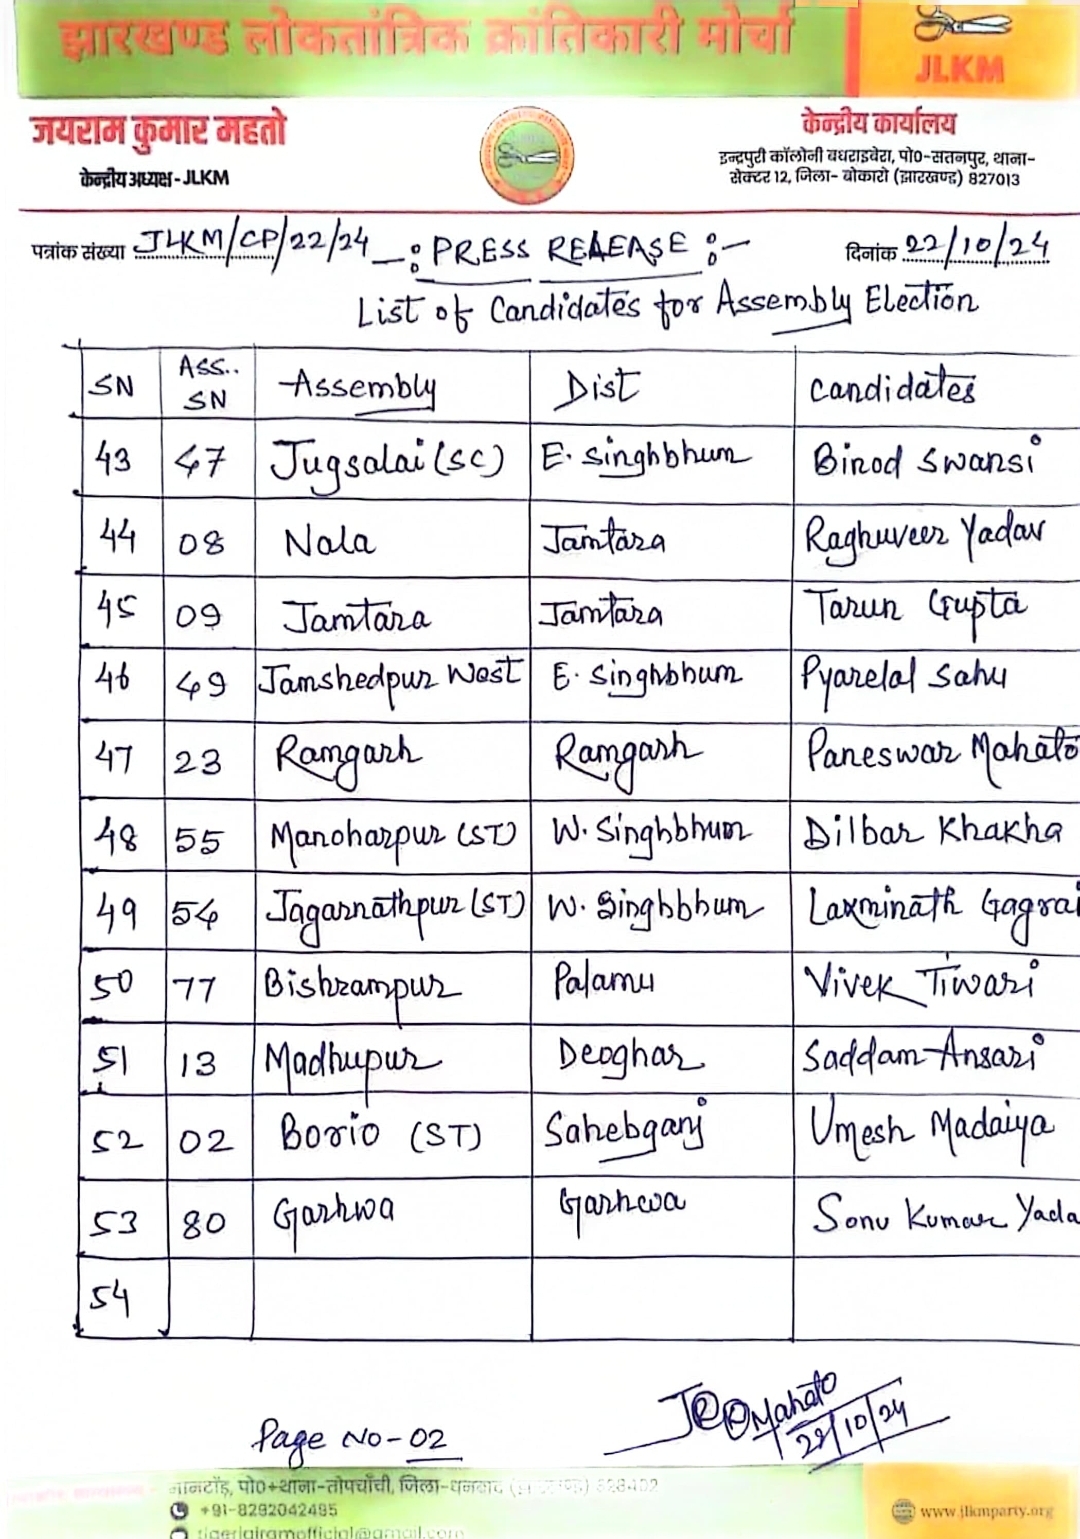 झारखण्ड लोकतांत्रिक क्रांतिकारी मोर्चा
JLKM
जयराम कुमार महतो
केन्द्रीय अध्यक्ष - JLKM
केन्द्रीय कार्यालय
इन्द्रपुरी कॉलोनी बधराइबेरा, पो०-सतनपुर, थाना-
सेक्टर 12, जिला- बोकारो (झारखण्ड) 827013
पत्रांक संख्या JLKM/CP/22/24 -: PRESS RELEASE :- दिनांक 22/10/24
List of Candidates for Assembly Election
SN Ass.. SN Assembly Dist Candidates
43 47 Jugsalai (SC) E. Singhbhum Binod Swansi
44 08 Nala Jamtara Raghuveer Yadav
45 09 Jamtara Jamtara Tarun Gupta
46 49 Jamshedpur West E. Singhbhum Pyarelal Sahu
47 23 Ramgarh Ramgarh Paneswar Mahato
48 55 Manoharpur (ST) W. Singhbhum Dilbar Khakha
49 54 Jagarnathpur (ST) W. Singhbhum Laxminath Gagrai
50 77 Bishrampur Palamu Vivek Tiwari
51 13 Madhupur Deoghar Saddam Ansari
52 02 Borio (ST) Sahebganj Umesh Madaiya
53 80 Garhwa Garhwa Sonu Kumar Yada
54
Mahato
22/10/24
Page No-02
पो०+थाना-तोपचाँची, जिला-धनबाद 828402
+91-8292042495
www.jlkmparty.org
tigerjairamofficial@gmail.com